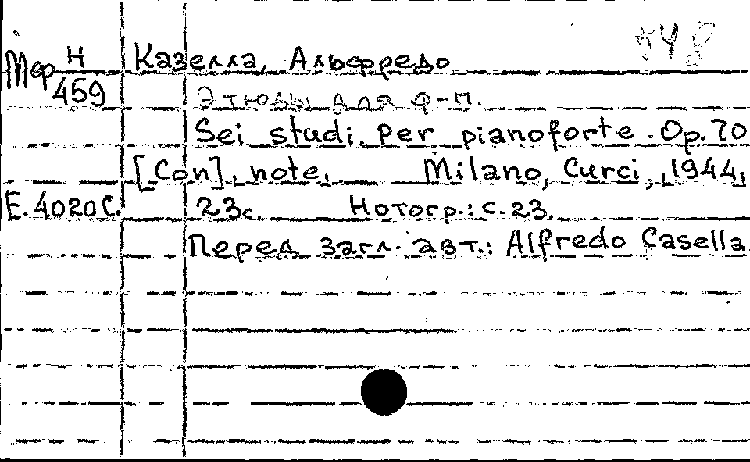 Мер Н Казелла, Альфредо
459 Этюды для ф-п.
Sei studi per pianoforte. Op. 70
[Con] note. Milano, Curci, 1944,
E.4020C. 23с. Нотогр.: с. 23.
Перед загл. авт.: Alfredo Casella